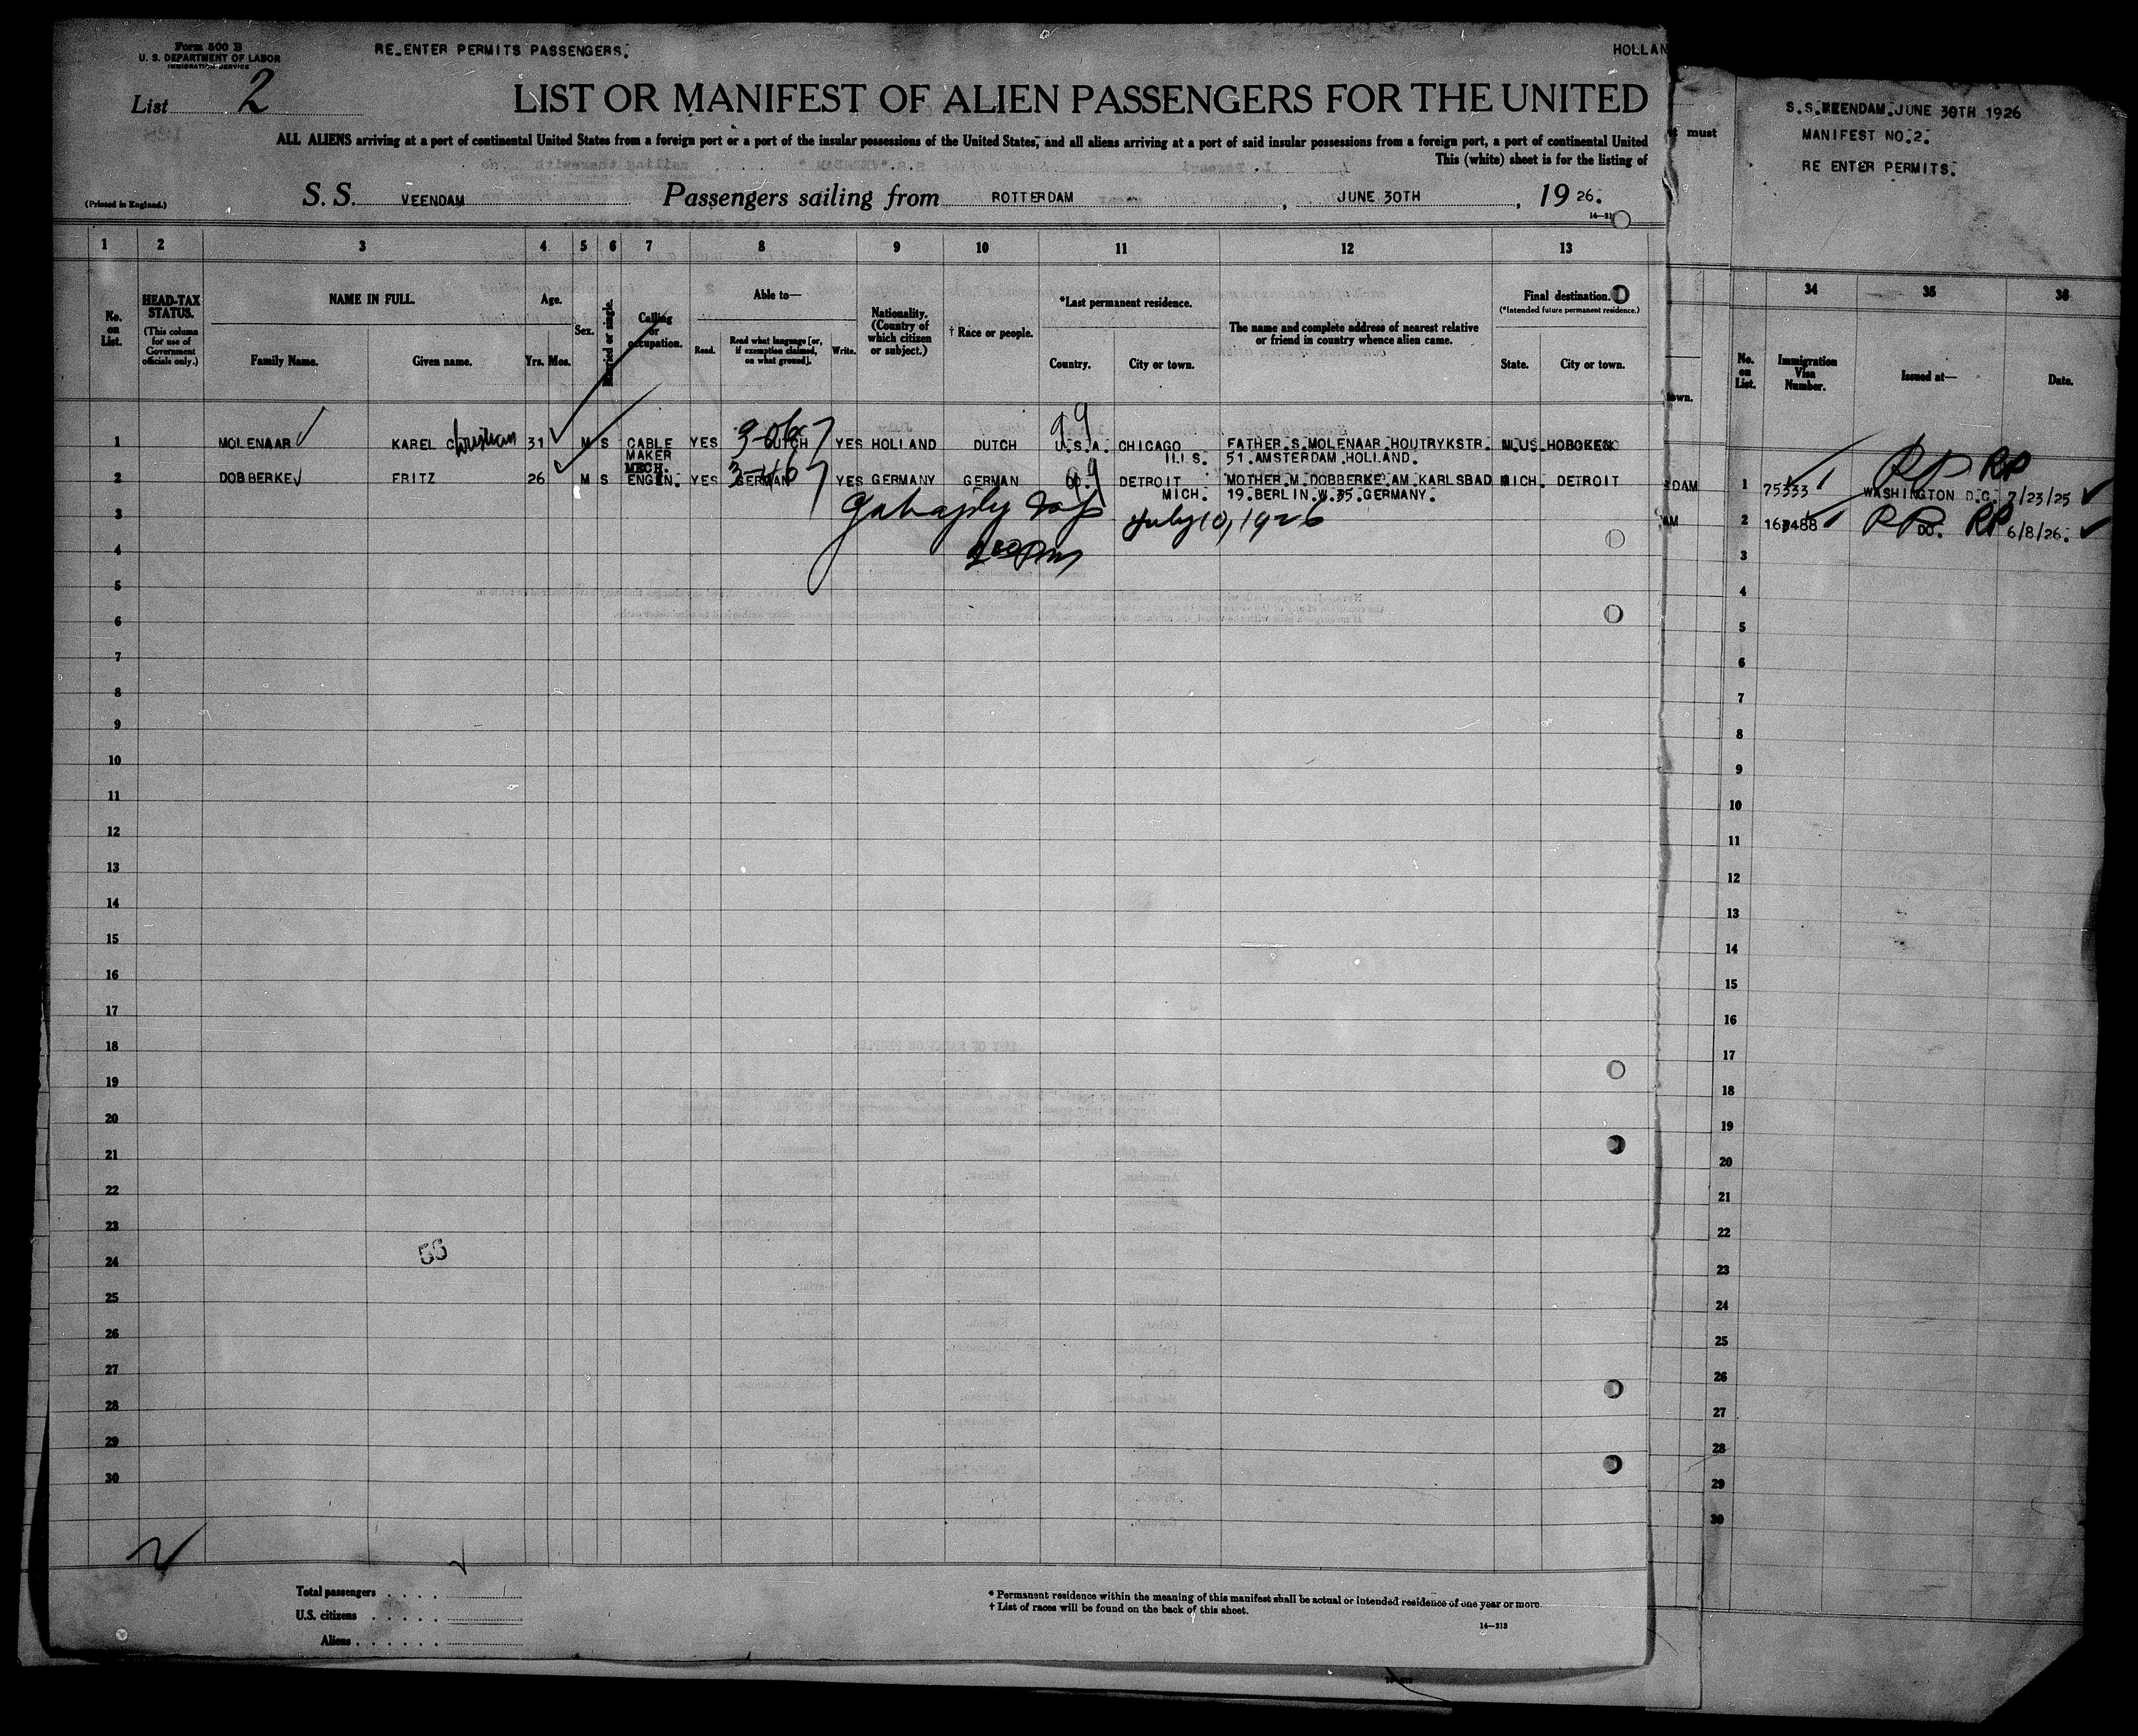 Form 500 B
U. S. DEPARTMENT OF LABOR
IMMIGRATION SERVICE
RE-ENTER PERMITS PASSENGERS.
HOLLAN
List 2
LIST OR MANIFEST OF ALIEN PASSENGERS FOR THE UNITED
ALL ALIENS arriving at a port of continental United States from a foreign port or a port of the insular possessions of the United States, and all aliens arriving at a port of said insular possessions from a foreign port, a port of continental United
This (white) sheet is for the listing of
(Printed in England.)
S. S. VEENDAM Passengers sailing from ROTTERDAM, JUNE 30TH, 19 26.
1 2 3 4 5 6 7 8 9 10 11 12 13
No. on List.
HEAD-TAX STATUS.
(This column for use of Government officials only.)
NAME IN FULL.
Family Name. Given name.
Age.
Yrs. Mos.
Sex.
Married or single.
Calling or occupation.
Able to—
Read. Read what language [or, if exemption claimed, on what ground]. Write.
Nationality. (Country of which citizen or subject.)
† Race or people.
*Last permanent residence.
Country. City or town.
The name and complete address of nearest relative or friend in country whence alien came.
Final destination.
(*Intended future permanent residence.)
State. City or town.
1 MOLENAAR KAREL Christian 31 M S CABLE YES DUTCH YES HOLLAND DUTCH U.S.A. CHICAGO FATHER S.MOLENAAR HOUTRYKSTR. HOBOKEN
MAKER ILLS. 51.AMSTERDAM.HOLLAND.
2 DOBBERKE FRITZ 26 M S MECH. ENGIN. YES GERMAN YES GERMANY GERMAN DETROIT MOTHER M.DOBBERKE AM KARLSBAD MICH. DETROIT
MICH. 19.BERLIN.W.35.GERMANY.
July 10, 1926
3
4
5
6
7
8
9
10
11
12
13
14
15
16
17
18
19
20
21
22
23
24
25
26
27
28
29
30
56
Total passengers
U.S. citizens
Aliens
* Permanent residence within the meaning of this manifest shall be actual or intended residence of one year or more.
† List of races will be found on the back of this sheet.
14—213
must
town.
DAM
AM
S.S.VEENDAM.JUNE 30TH 1926
MANIFEST NO.2.
RE ENTER PERMITS.
34 35 36
No. on List.
Immigration Visa Number.
Issued at—
Date.
RP RP
1 75333 WASHINGTON D.C. 7/23/25
2 RP DO. RP 6/8/26.
3
4
5
6
7
8
9
10
11
12
13
14
15
16
17
18
19
20
21
22
23
24
25
26
27
28
29
30